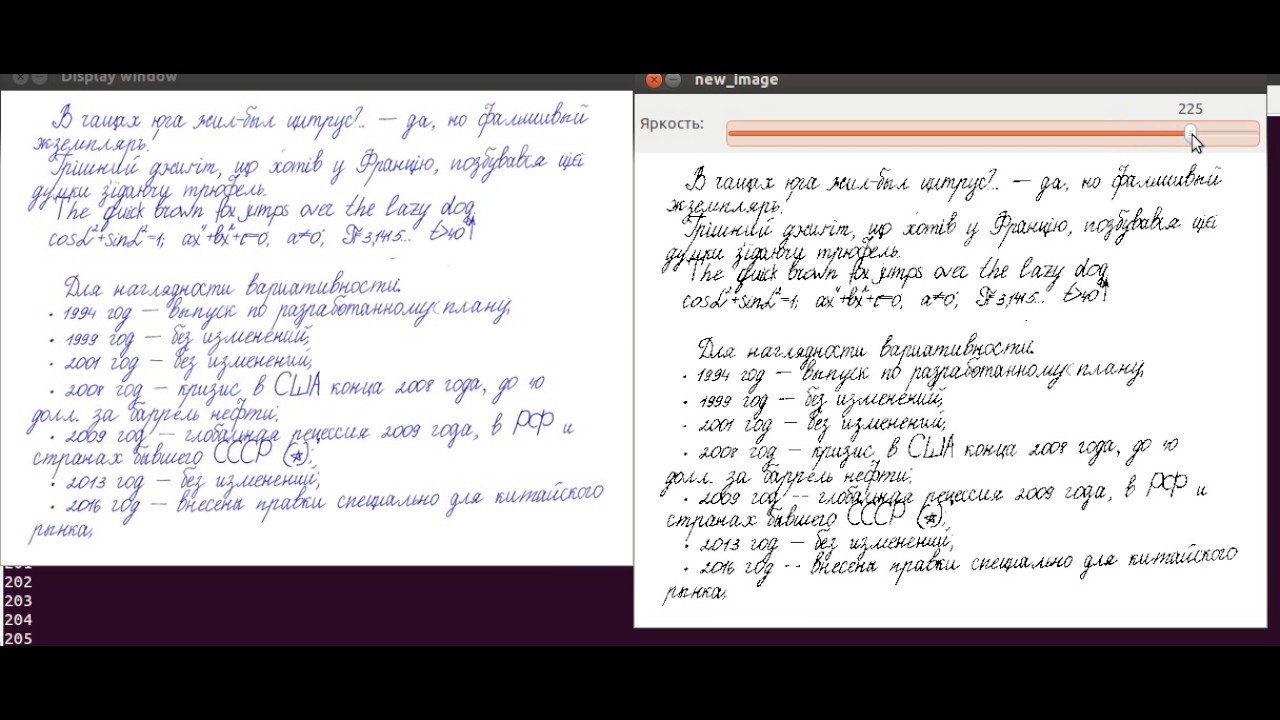 Display window
В чащах юга жил-был цитрус?.. — да, но фальшивый
жземпляръ.
Грішний джигіт, що хотів у Францію, позбувався цієї
думки з'їдаючи трюфель.
The quick brown fox jumps over the lazy dog
cosα²+sinα²=1; ax⁴+bx²+c=0; a≠0; 3,1415... t>40
Для наглядности вариативности:
• 1994 год — выпуск по разработанному плану;
• 1999 год — без изменений;
• 2001 год — без изменений;
• 2008 год — кризис в США конца 2008 года, до 40
долл. за баррель нефти;
• 2009 год — глобальная рецессия 2009 года, в РФ и
странах бывшего СССР (*);
• 2013 год — без изменений;
• 2016 год — внесены правки специально для китайского
рынка;
201
202
203
204
205
new_image
Яркость:
225
В чащах юга жил-был цитрус?.. — да, но фальшивый
жземпляръ.
Грішний джигіт, що хотів у Францію, позбувався цієї
думки з'їдаючи трюфель.
The quick brown fox jumps over the lazy dog
cosα²+sinα²=1; ax⁴+bx²+c=0; a≠0; 3,1415... t>40
Для наглядности вариативности:
• 1994 год — выпуск по разработанному плану;
• 1999 год -- без изменений;
• 2001 год — без изменений;
• 2008 год — кризис в США конца 2008 года, до 40
долл. за баррель нефти;
• 2009 год -- глобальная рецессия 2009 года, в РФ и
странах бывшего СССР (*);
• 2013 год — без изменений;
• 2016 год -- внесены правки специально для китайского
рынка;